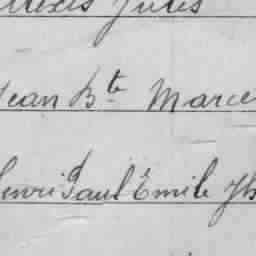 Alexis Jules
Jean Bte Marce
Henri Paul Emile